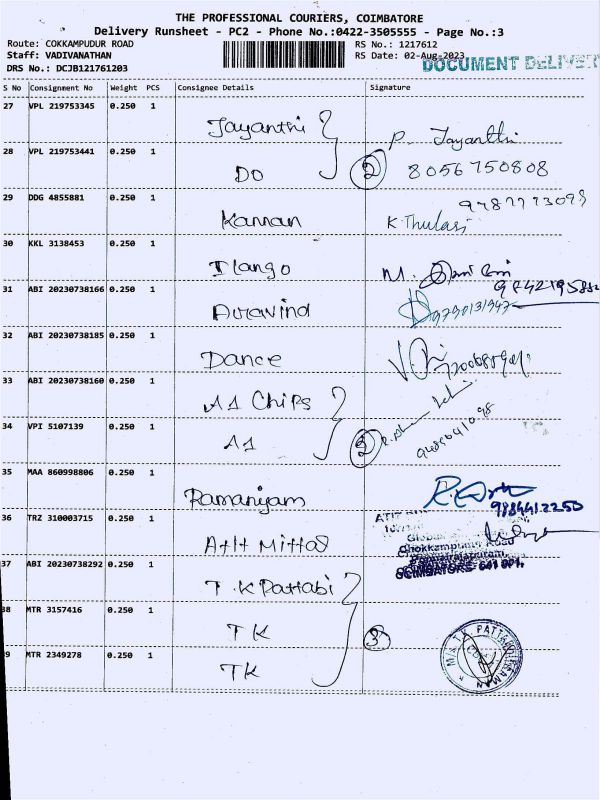 THE PROFESSIONAL COURIERS, COIMBATORE
Delivery Runsheet - PC2 - Phone No.:0422-3505555 - Page No.:3
Route: COKKAMPUDUR ROAD
RS No.: 1217612
Staff: VADIVANATHAN
RS Date: 02-Aug-2023
DOCUMENT DELIVERY
DRS No.: DCJB121761203
S No Consignment No Weight PCS Consignee Details Signature
27 VPL 219753345 0.250 1 Jayanthi P. Jayanthi
28 VPL 219753441 0.250 1 DO 2 8056750808
29 DDG 4855881 0.250 1 Kannan K. Thulasi
30 KKL 3138453 0.250 1 Ilango M.
31 ABI 20230738166 0.250 1 Aravind 9790131947
32 ABI 20230738185 0.250 1 Dance
33 ABI 20230738160 0.250 1 A1 Chips
34 VPI 5107139 0.250 1 A1 2
35 MAA 860998806 0.250 1 Ramaniyam 9884412250
36 TRZ 310003715 0.250 1 Atit Mittas
Chokkampudur Road
Ramarajapuram,
COIMBATORE-641 001.
37 ABI 20230738292 0.250 1 T.K Pattabi
38 MTR 3157416 0.250 1 TK 3
39 MTR 2349278 0.250 1 TK